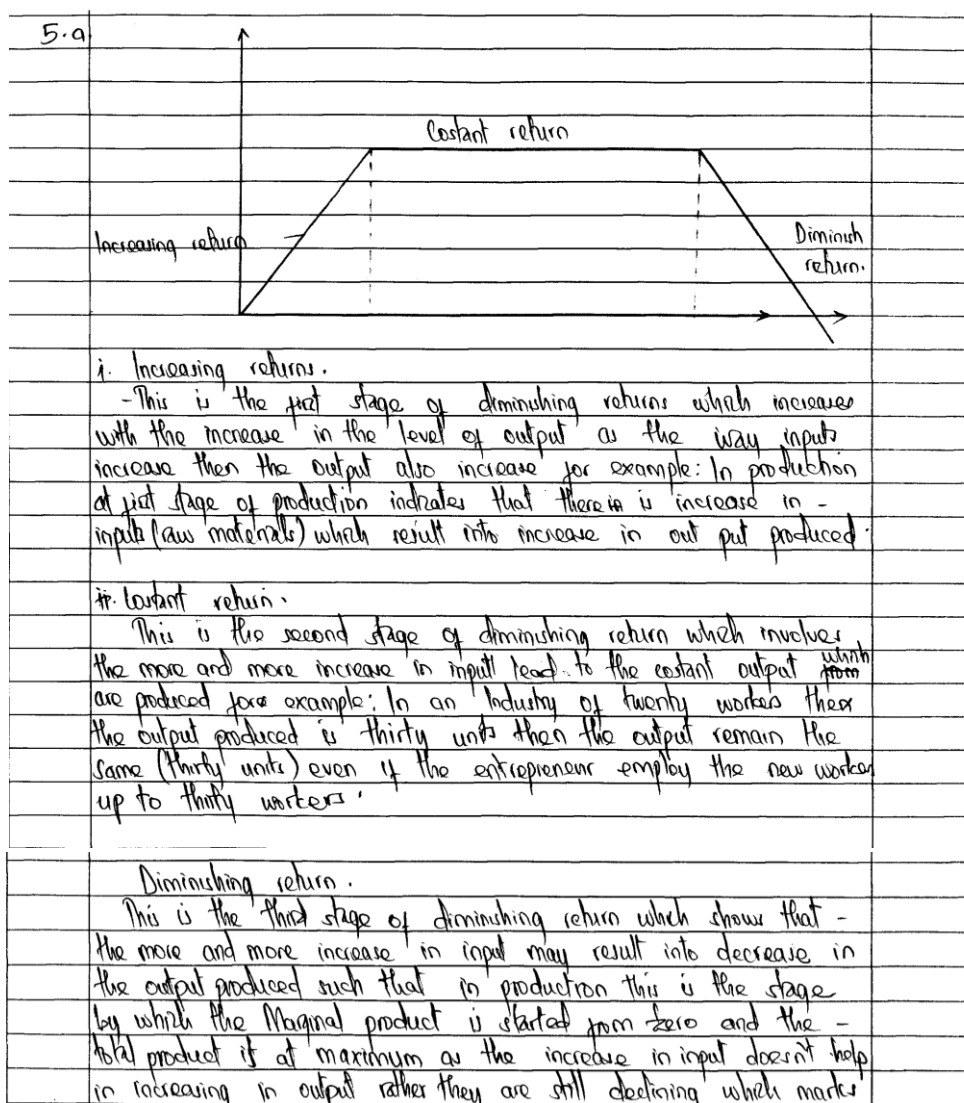 5.a
Costant return
Increasing return
Diminish
return.
i. Increasing returns.
-This is the first stage of diminishing returns which increases
with the increase in the level of output as the way inputs
increase then the output also increase for example: In production
at first stage of production indicates that there is increase in -
inputs (raw materials) which result into increase in out put produced.
ii. Costant return.
This is the second stage of diminishing return which involves
the more and more increase in input lead to the costant output which
are produced for example: In an Industry of twenty workers then
the output produced is thirty units then the output remain the
same (thirty units) even if the entrepreneur employ the new worker
up to thirty workers.
Diminishing return.
This is the third stage of diminishing return which shows that -
the more and more increase in input may result into decrease in
the output produced such that in production this is the stage
by which the Maginal product is started from zero and the -
total product is at maximum as the increase in input doesn't help
in increasing in output rather they are still declining which marks